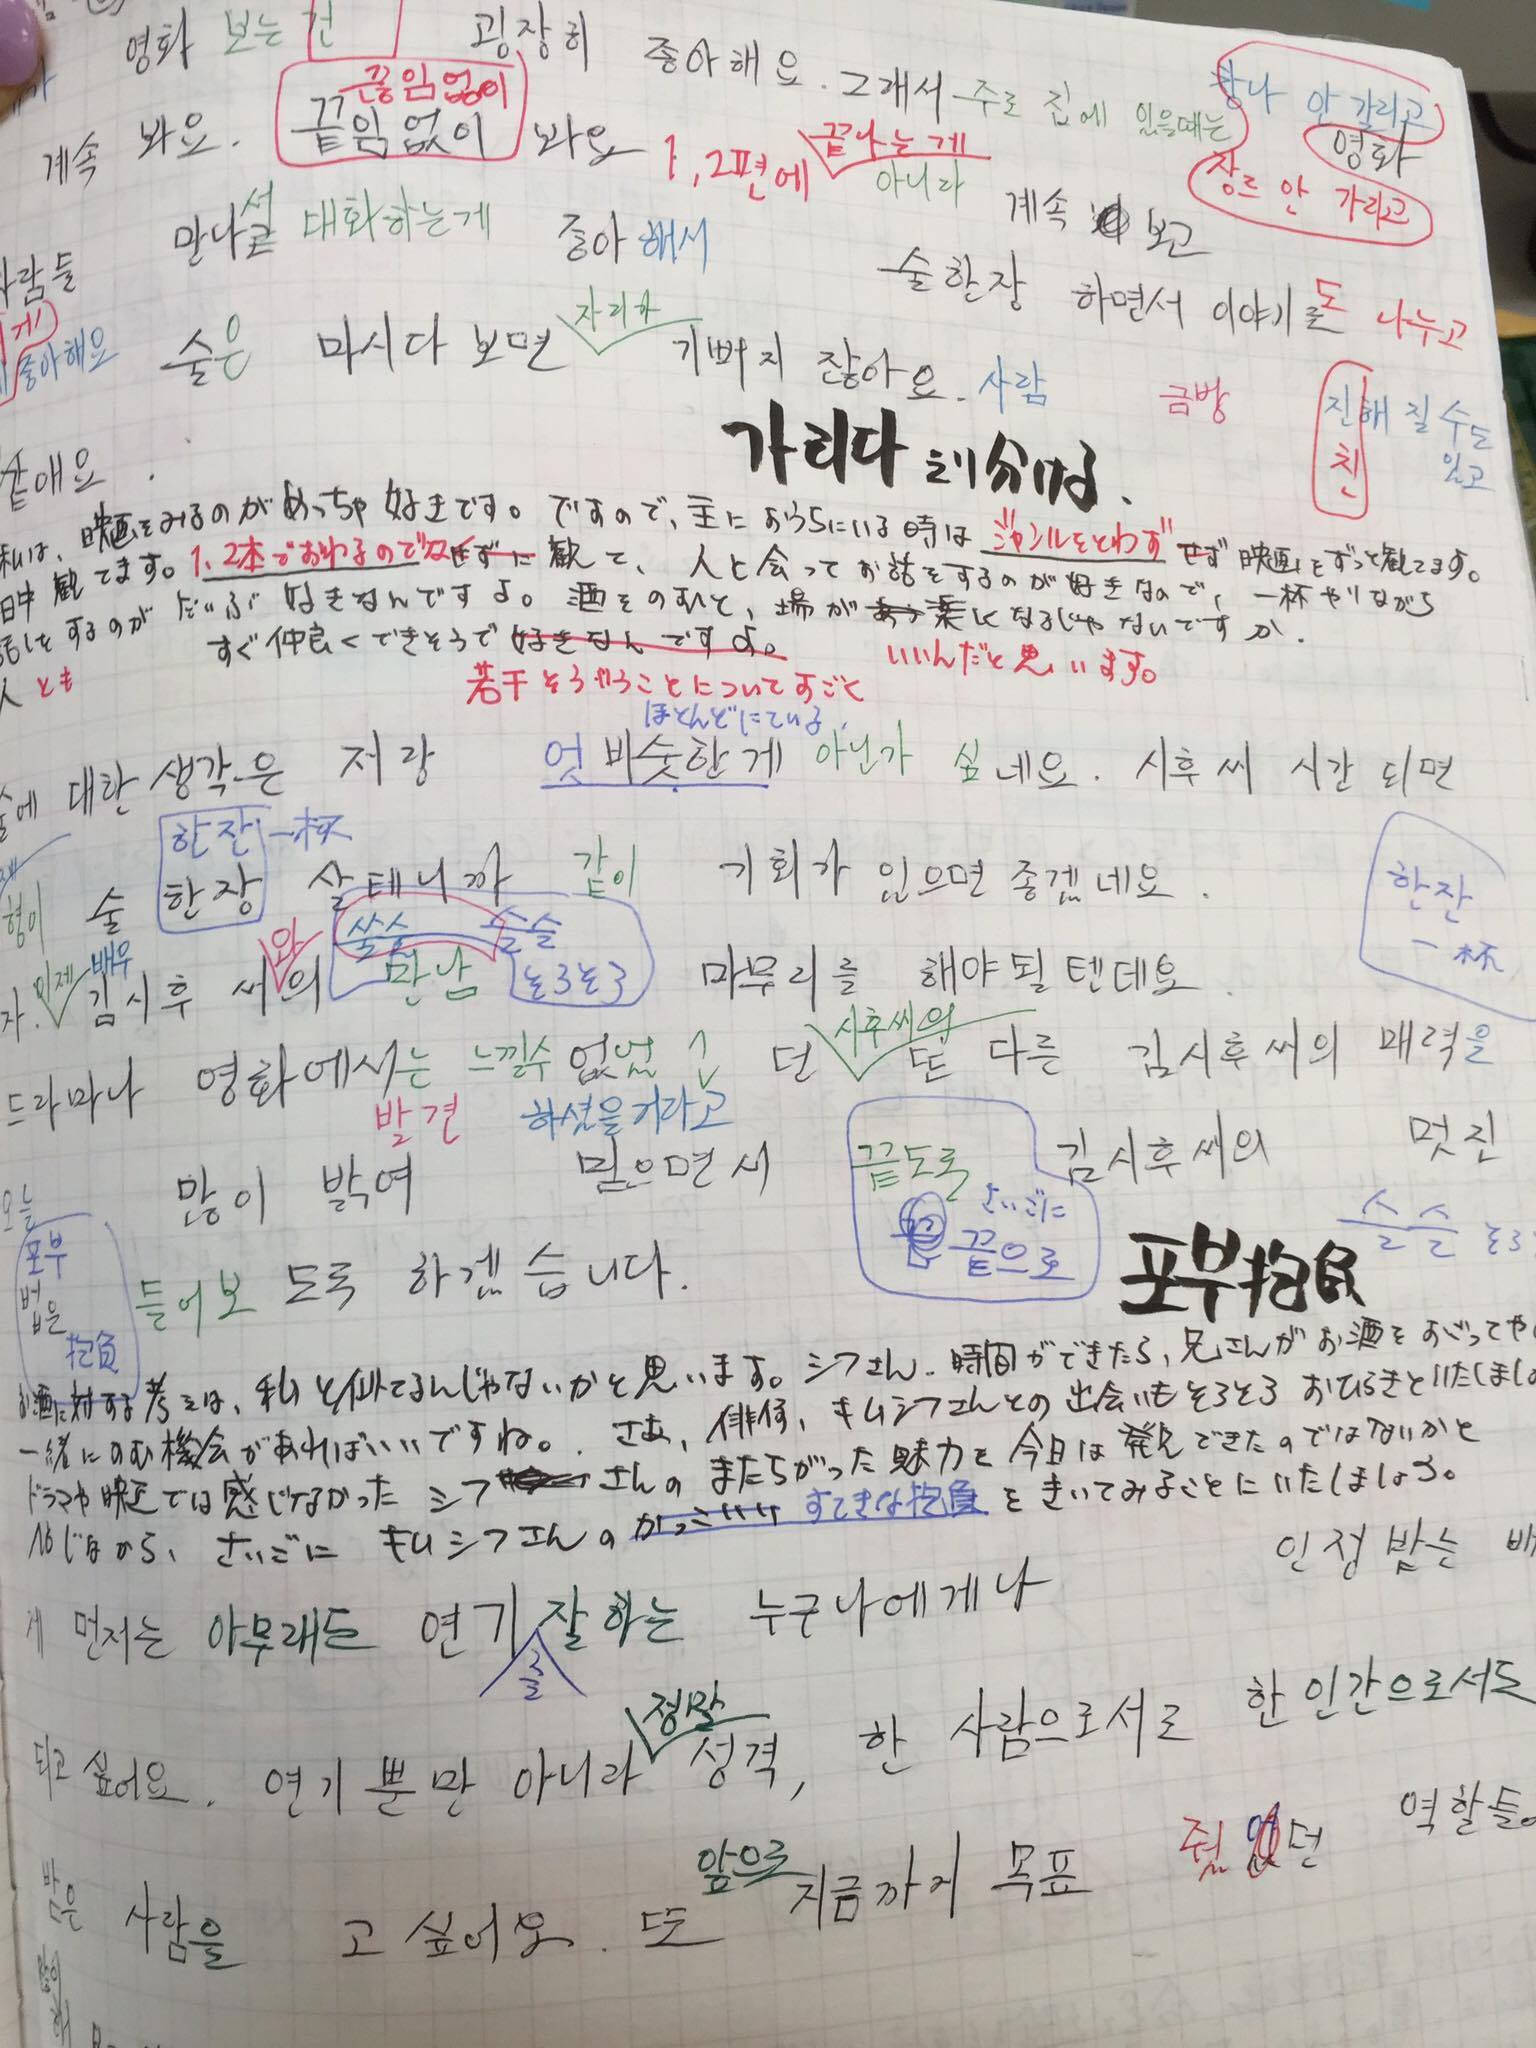 영화 보는 건 굉장히 좋아해요. 그래서 주로 집에 있을때는 장나 안 갈리고
끊임없이 영화
계속 봐요. 끝임없이 봐요 1,2편에 끝나는게 아니라 계속 보고 장르 안 가리고
만나서 대화하는게 좋아해서 술한장 하면서 이야기를도 나누고
사람들
좋아해요 술은 마시다 보면 자리가 기뻐지잖아요. 사람 금방 진해 질 수도 있고
친
같애요.
가리다 より分ける.
私は、映画をみるのがめっちゃ好きです。ですので、主におうちにいる時はジャンルをとわずせず映画をずっと観てます。
日中観てます。1,2本でおわるのでなくせずに観て、人と会ってお話をするのが好きなので、一杯やりながら
話しをするのがだいぶ好きなんですよ。酒をのむと、場が楽しくなるじゃないですか.
人とも すぐ仲良くできそうで好きなんですよ。いいんだと思います。
若干そうやうことについてすごく
ほとんどにている.
술에 대한 생각은 저랑 엇비슷한게 아닌가 싶네요. 시후씨 시간 되면
한잔 一杯
형이 술 한장 살테니까 같이 기회가 있으면 좋겠네요. 한잔
一杯
와 쓸슬 슬슬
자. 이제 배우 김시후 씨의 만남 そろそろ 마무리를 해야될텐데요.
드라마나 영화에서는 느낄수 없었던 시후씨의 또 다른 김시후씨의 매력을
발견 하셨을거라고
오늘 많이 밝여 믿으면서 끝도록 김시후씨의 멋진
さいごに
끝으로
슬슬
포부
법은 들어보도록 하겠습니다. 포부 抱負
抱負
お酒に対する考えは、私と似てるんじゃないかと思います。シフさん.時間ができたら、兄さんがお酒をおごって
一緒にのむ機会があればいいですね。. さあ、俳優、キムシフさんとの出会いもそろそろおひらきといたしまし
ドラマや映画では感じなかったシフさんのまたちがった魅力を今日は発見できたのではないかと
信じながら、さいごにキムシフさんのすてきな抱負をきいてみることにいたしましょう。
인정받는
게 먼저는 아무래도 연기 잘하는 누구나에게나
를
되고 싶어요. 연기 뿐만 아니라 정말 성격, 한 사람으로서로 한 인간으로서도
받은 사람을 고 싶어요. 또 앞으로 지금까지 목표 줬던 역할들
많이
해